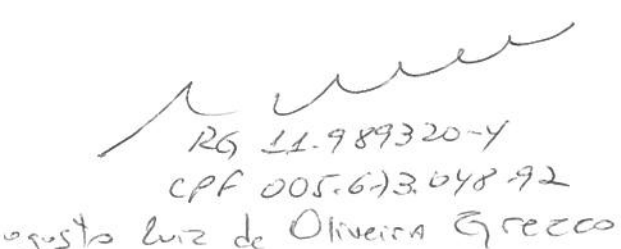 RG 11.989320-4
CPF 005.673.048-92
ogusto Luiz de Oliveira Grecco